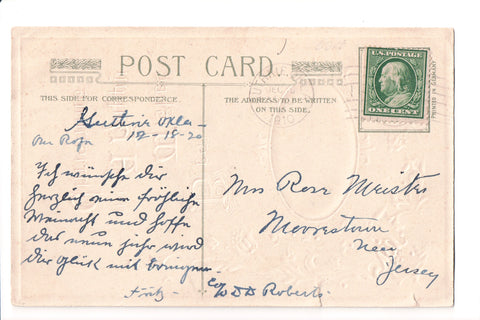 POST CARD
THIS SIDE FOR CORRESPONDENCE.
THE ADDRESS TO BE WRITTEN
ON THIS SIDE.
U.S. POSTAGE
ONE CENT
PRINTED IN GERMANY
DEC
1910
Guthrie Okla
12-18-20
Ich wünsche dir
herzlich einen fröhliche
Weinacht und hoffe
das neue jahr wird
dir glück mit bringen.
Fritz
Mrs Rosr Meister
Moorestown
New
Jersey
c/o W D D Roberts.